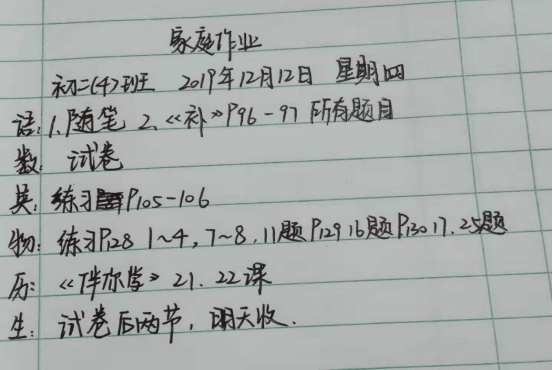 家庭作业
初二(4)班 2019年12月12日 星期四
语: 1.随笔 2.《补》P96-97 所有题目
数: 试卷
英: 练习P105-106
物: 练习P128 1~4, 7~8, 11题 P129 16题 P130 17. 25题
历: 《伴你学》21. 22课
生: 试卷后两节, 明天收.